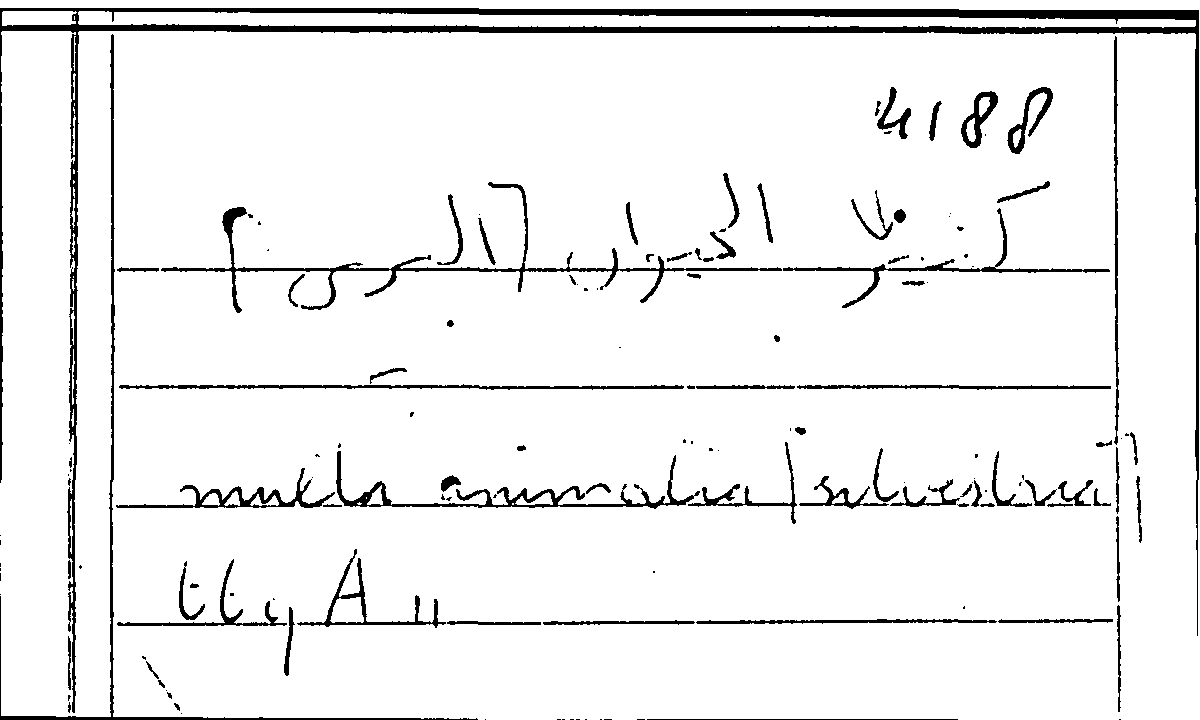 4188
كثير الحيوان [البرى]
multa animalia [silvestria]